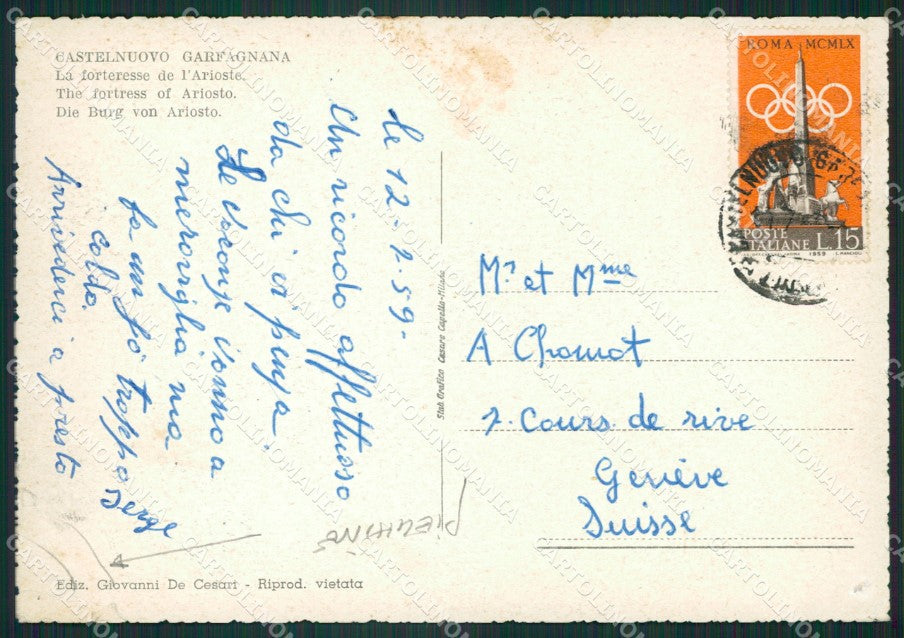 CASTELNUOVO GARFAGNANA
La forteresse de l'Arioste.
The fortress of Ariosto.
Die Burg von Ariosto.
le 12.7.59-
Un ricordo affettuoso
da chi vi pensa.
Le vacanze vanno a
meraviglia ma
fa un po' troppo
caldo.
Arrivederci a presto
Serge
Ediz. Giovanni De Cesari - Riprod. vietata
Stab. Grafico Cesare Capello - Milano
ROMA MCMLX
POSTE
ITALIANE L.15
1959
Mr et Mme
A Chomat
7. Cours de rive
Genève
Suisse
CARTOLINOMANIA